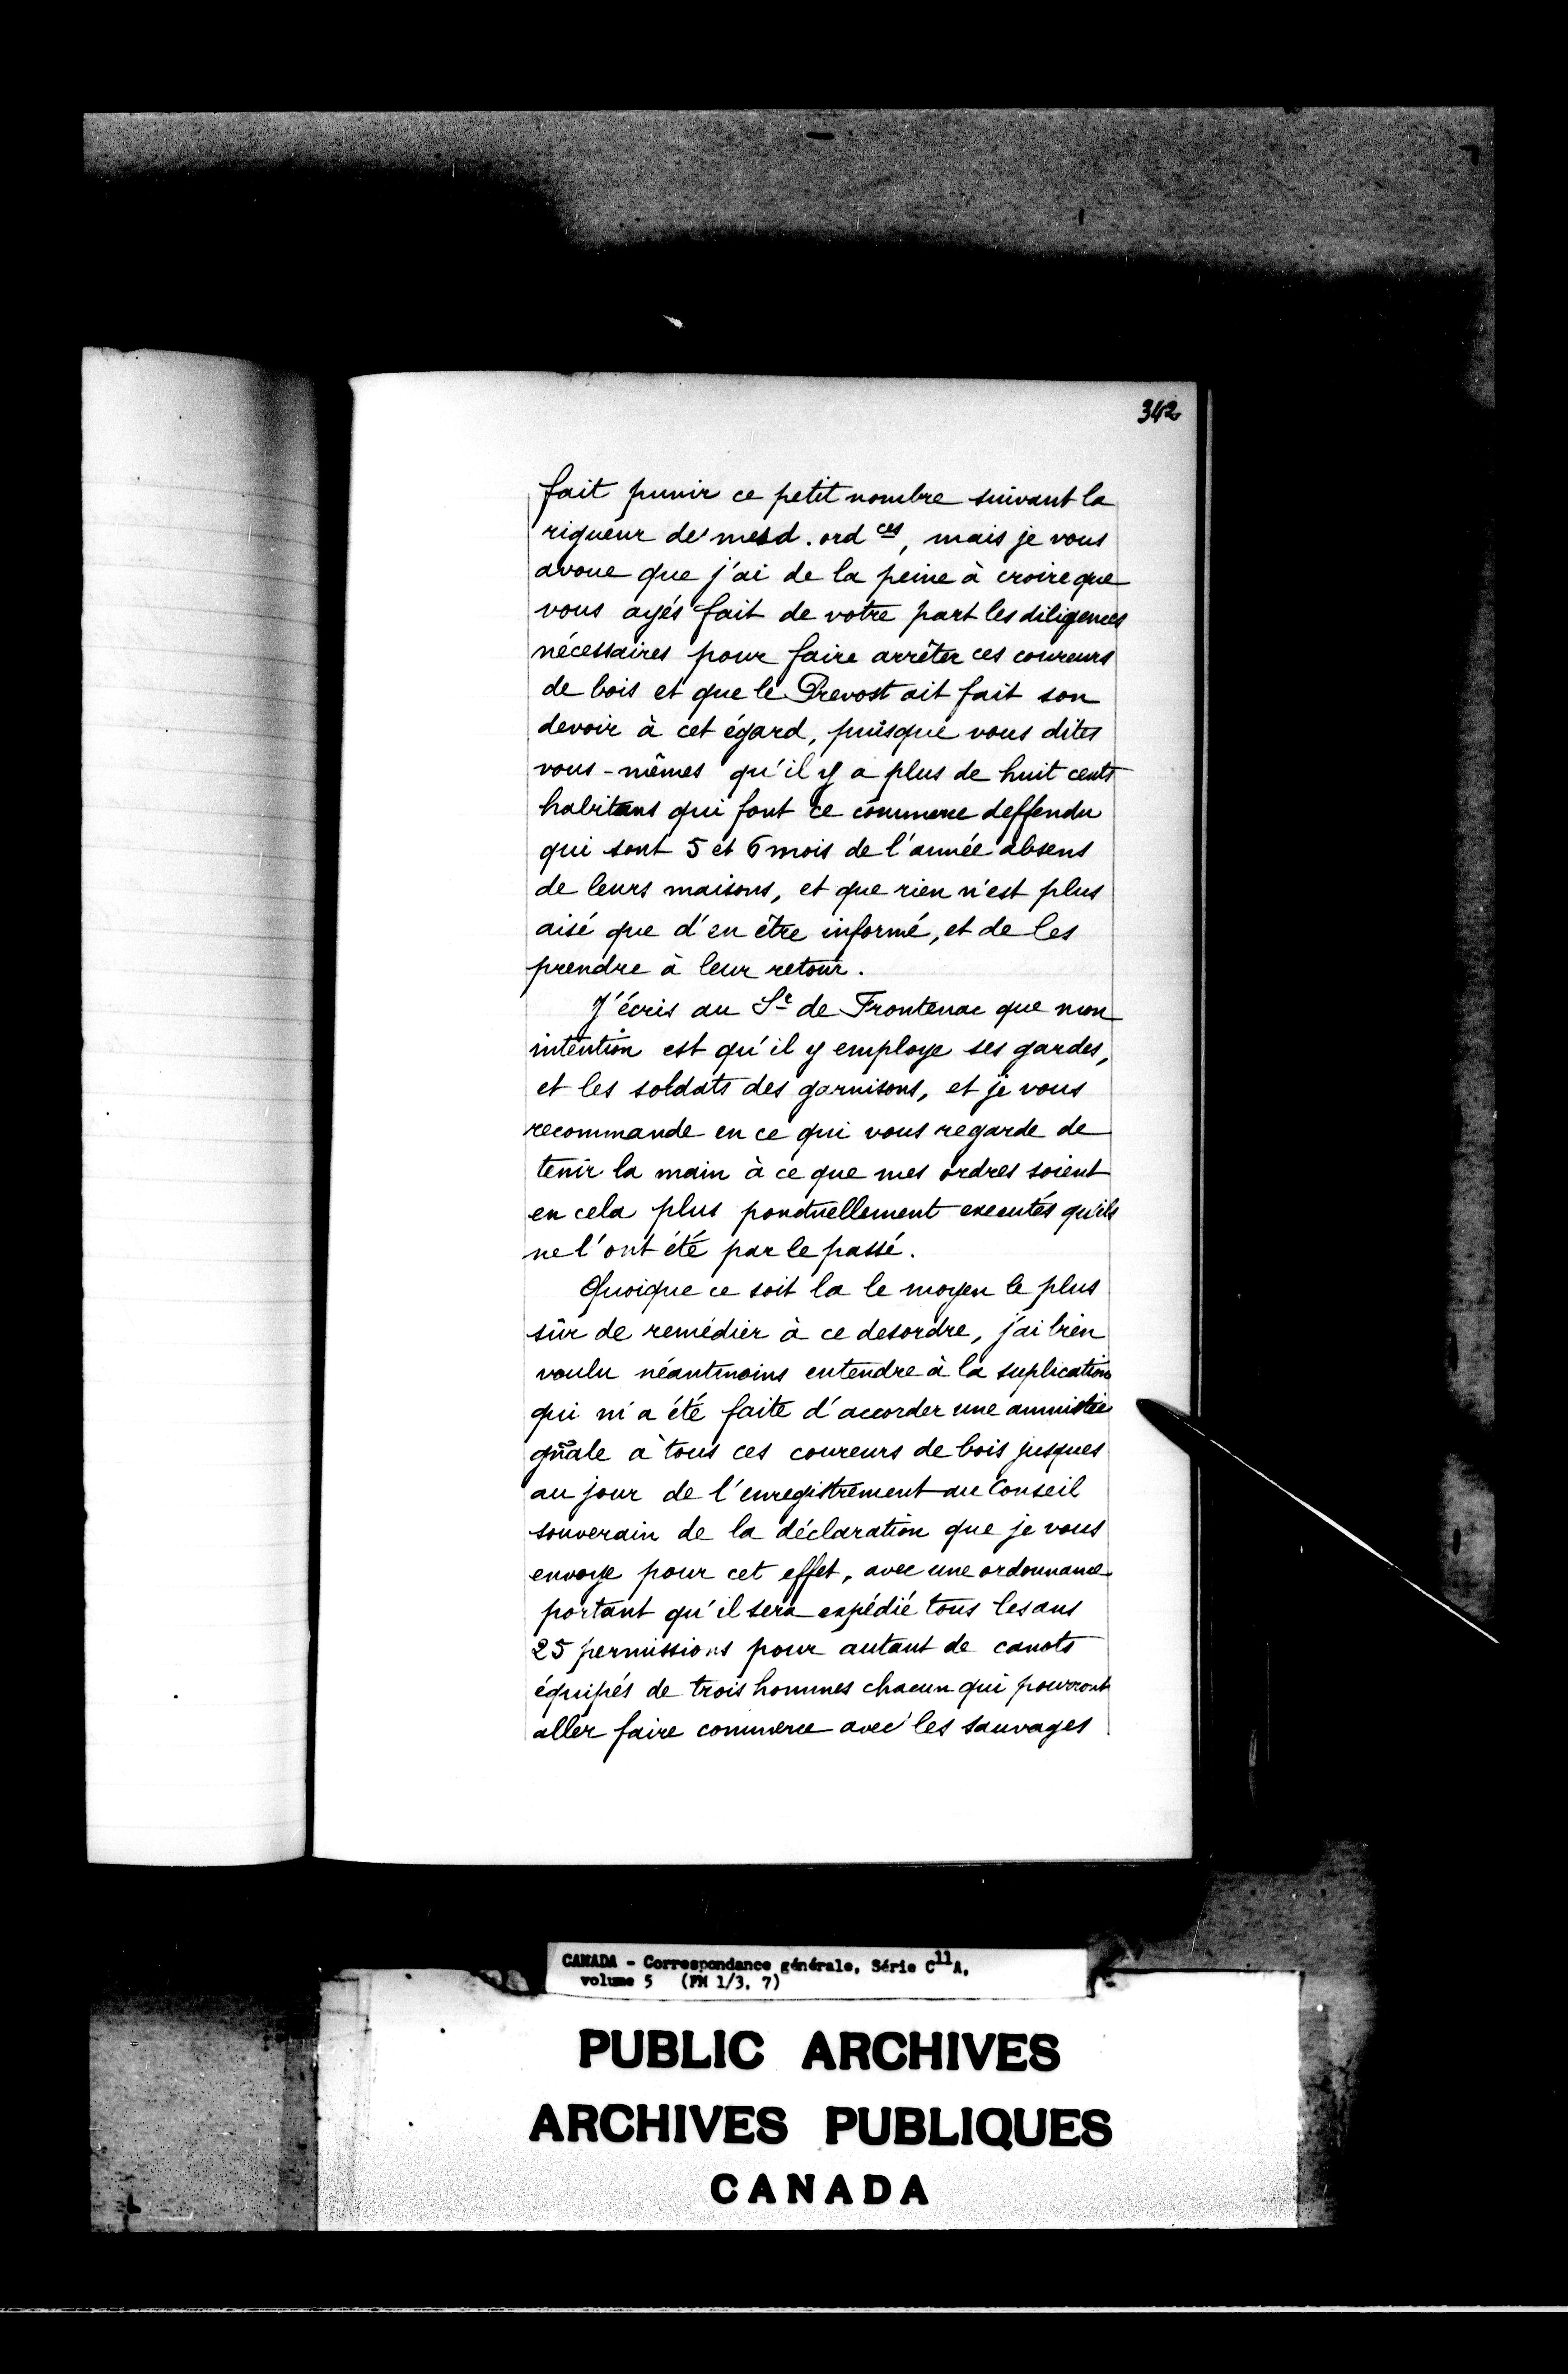 342
fait punir ce petit nombre suivant la
rigueur de mesd. ord ces, mais je vous
avoue que j'ai de la peine à croire que
vous ayés fait de votre part les diligences
nécessaires pour faire arrêter ces coureurs
de bois et que le Prevost ait fait son
devoir à cet égard, puisque vous dites
vous-mêmes qu'il y a plus de huit cents
habitans qui font ce commerce deffendu
qui sont 5 et 6 mois de l'année absens
de leurs maisons, et que rien n'est plus
aisé que d'en être informé, et de les
prendre à leur retour.
J'écris au Sr de Frontenac que mon
intention est qu'il y employe ses gardes,
et les soldats des garnisons, et je vous
recommande en ce qui vous regarde de
tenir la main à ce que mes ordres soient
en cela plus ponctuellement executés qu'ils
ne l'ont été par le passé.
Quoique ce soit la le moyen le plus
sûr de remédier à ce desordre, j'ai bien
voulu néantmoins entendre à la suplication
qui m'a été faite d'accorder une amnistie
gñale à tous ces coureurs de bois jusques
au jour de l'enregistrement au Conseil
souverain de la déclaration que je vous
envoye pour cet effet, avec une ordonnance
portant qu'il sera expédié tous les ans
25 permissions pour autant de canots
équipés de trois hommes chacun qui pourront
aller faire commerce avec les sauvages
CANADA - Correspondance générale, Série C11A,
volume 5 (FM 1/3, 7)
PUBLIC ARCHIVES
ARCHIVES PUBLIQUES
CANADA